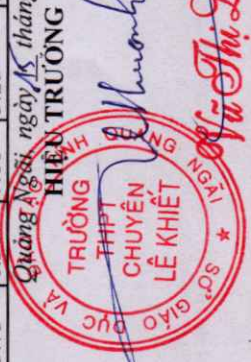 Quảng Ngãi, ngày 15 thán
HIỆU TRƯỞNG
SỞ GIÁO DỤC VÀ
NH QUẢNG NGÃI
TRƯỜNG
THPT
CHUYÊN
LÊ KHIẾT
Vũ Thị